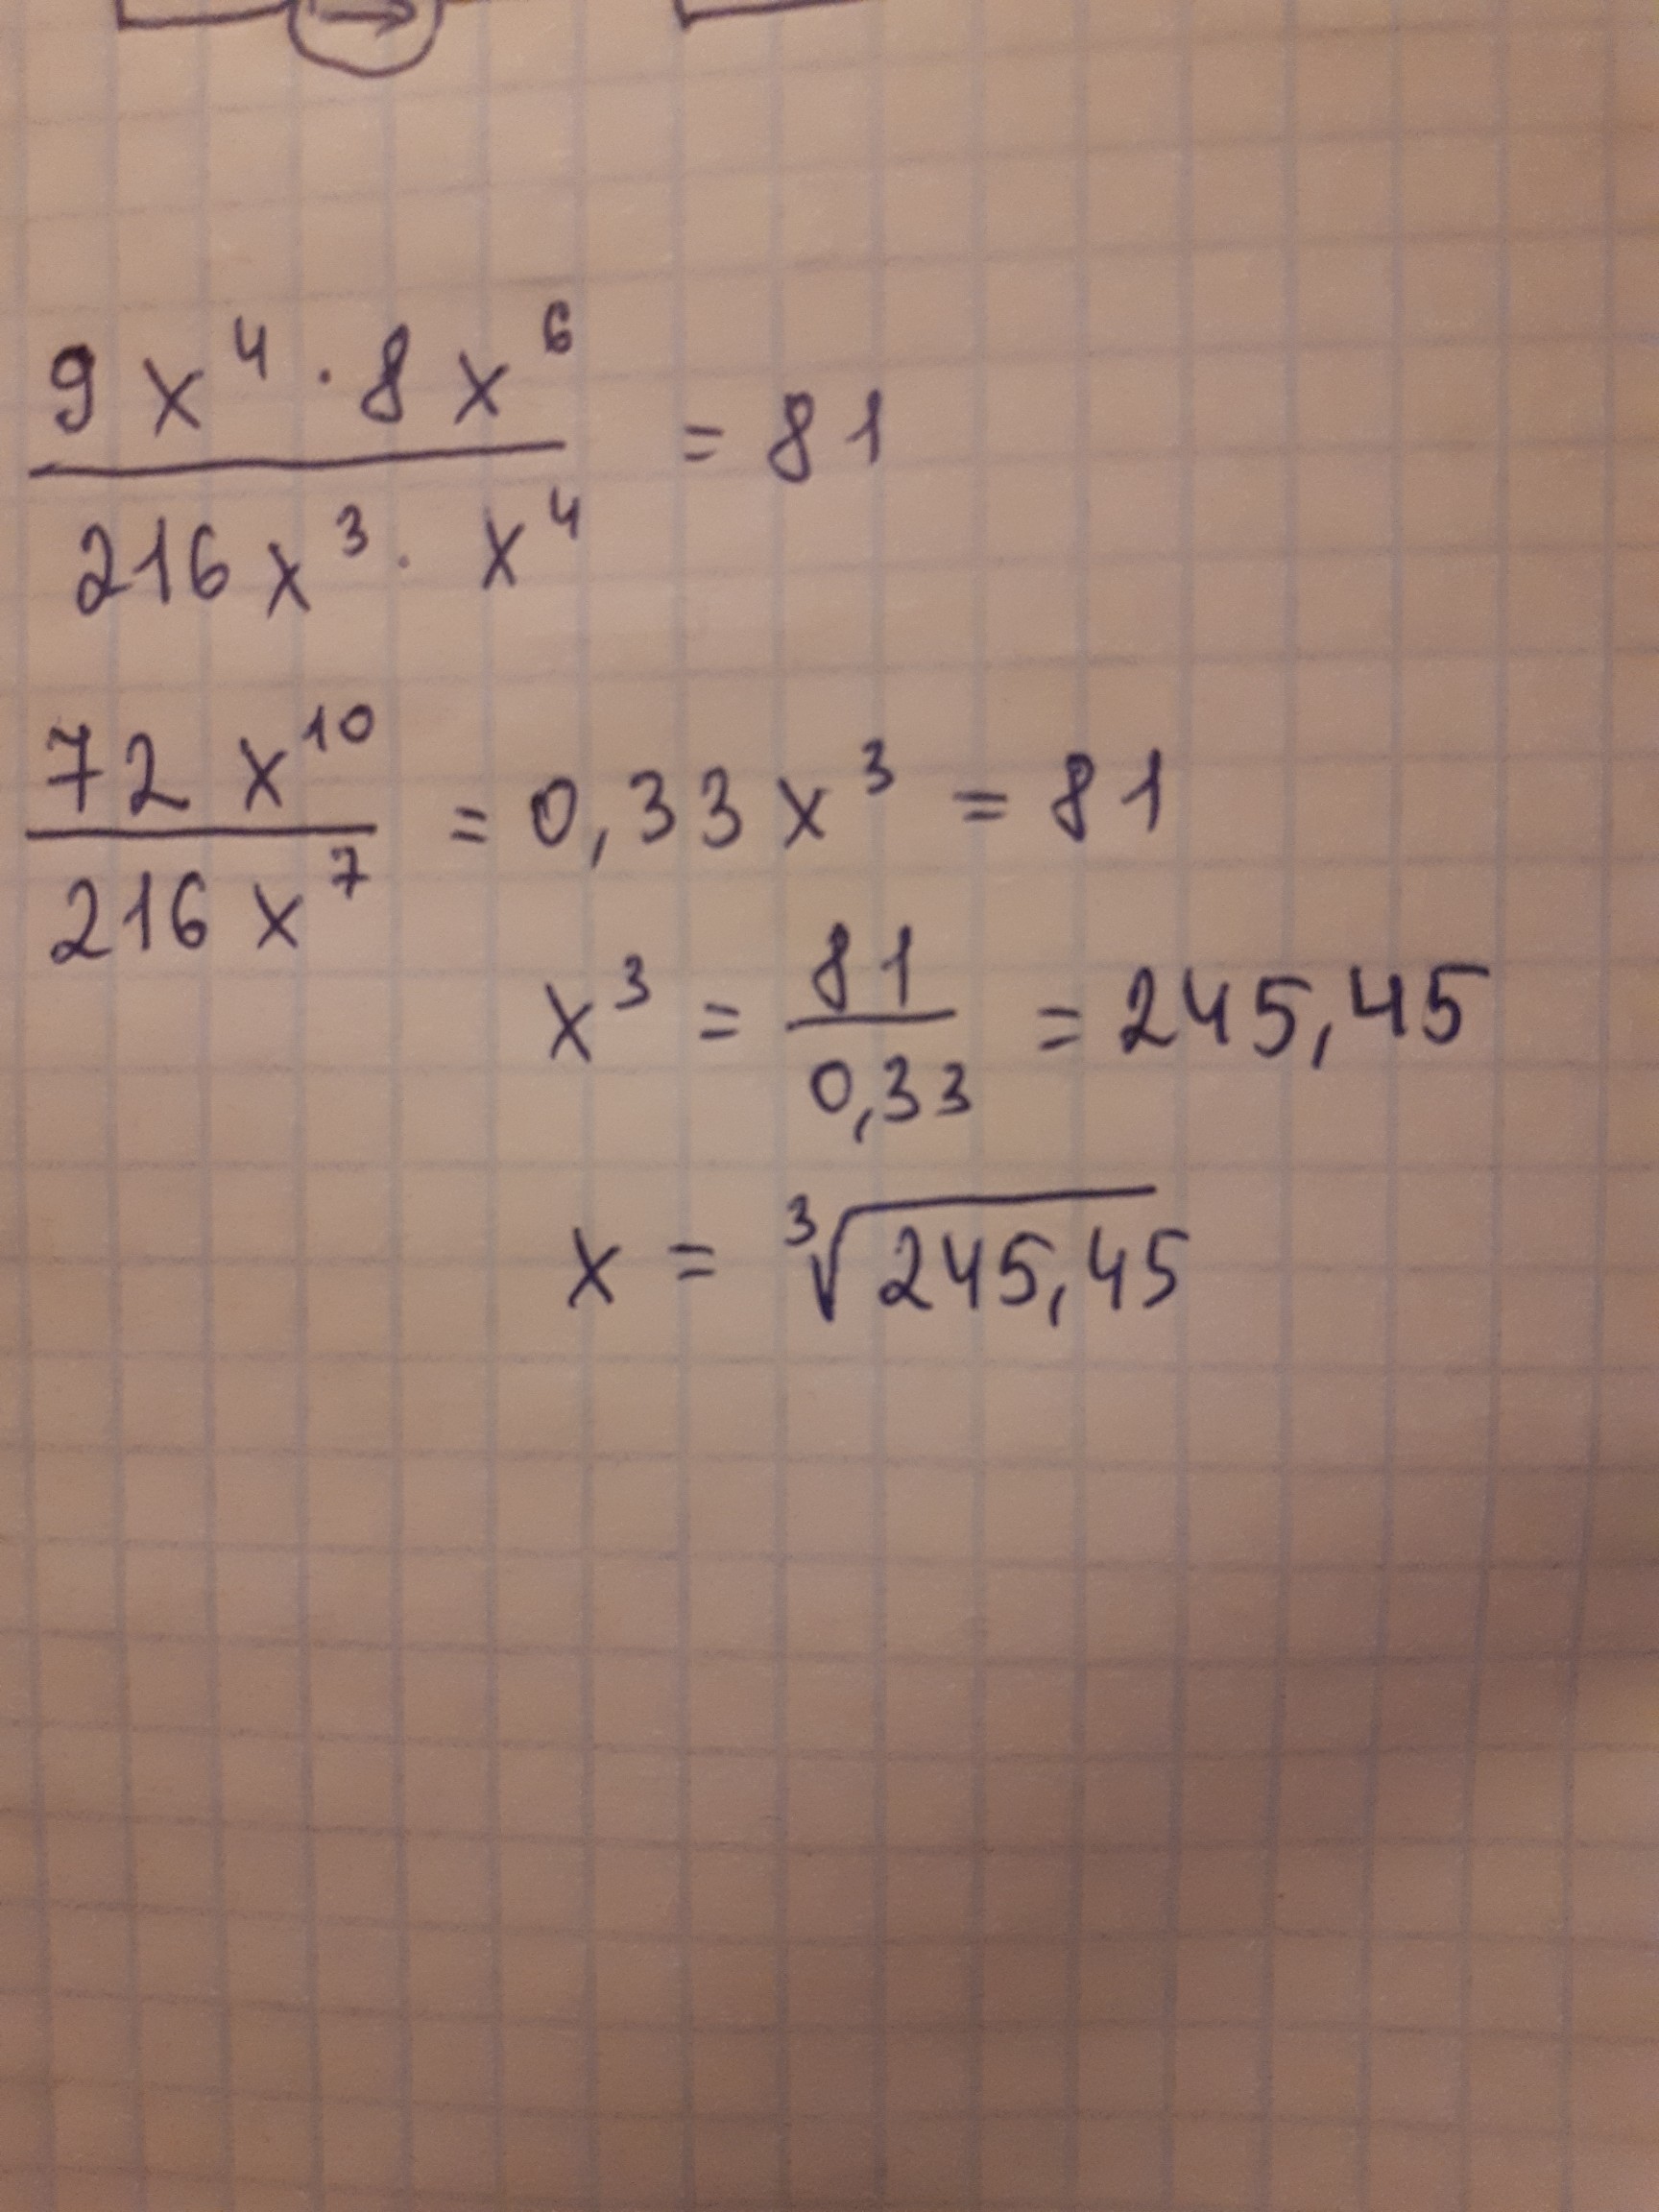 9x⁴ · 8x⁶ / 216x³ · x⁴ = 81
72x¹⁰ / 216x⁷ = 0,33x³ = 81
x³ = 81 / 0,33 = 245,45
x = ³√245,45